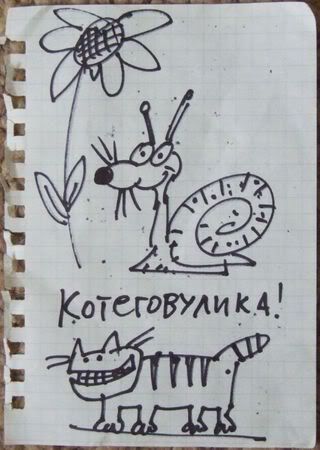 Котеговулика!